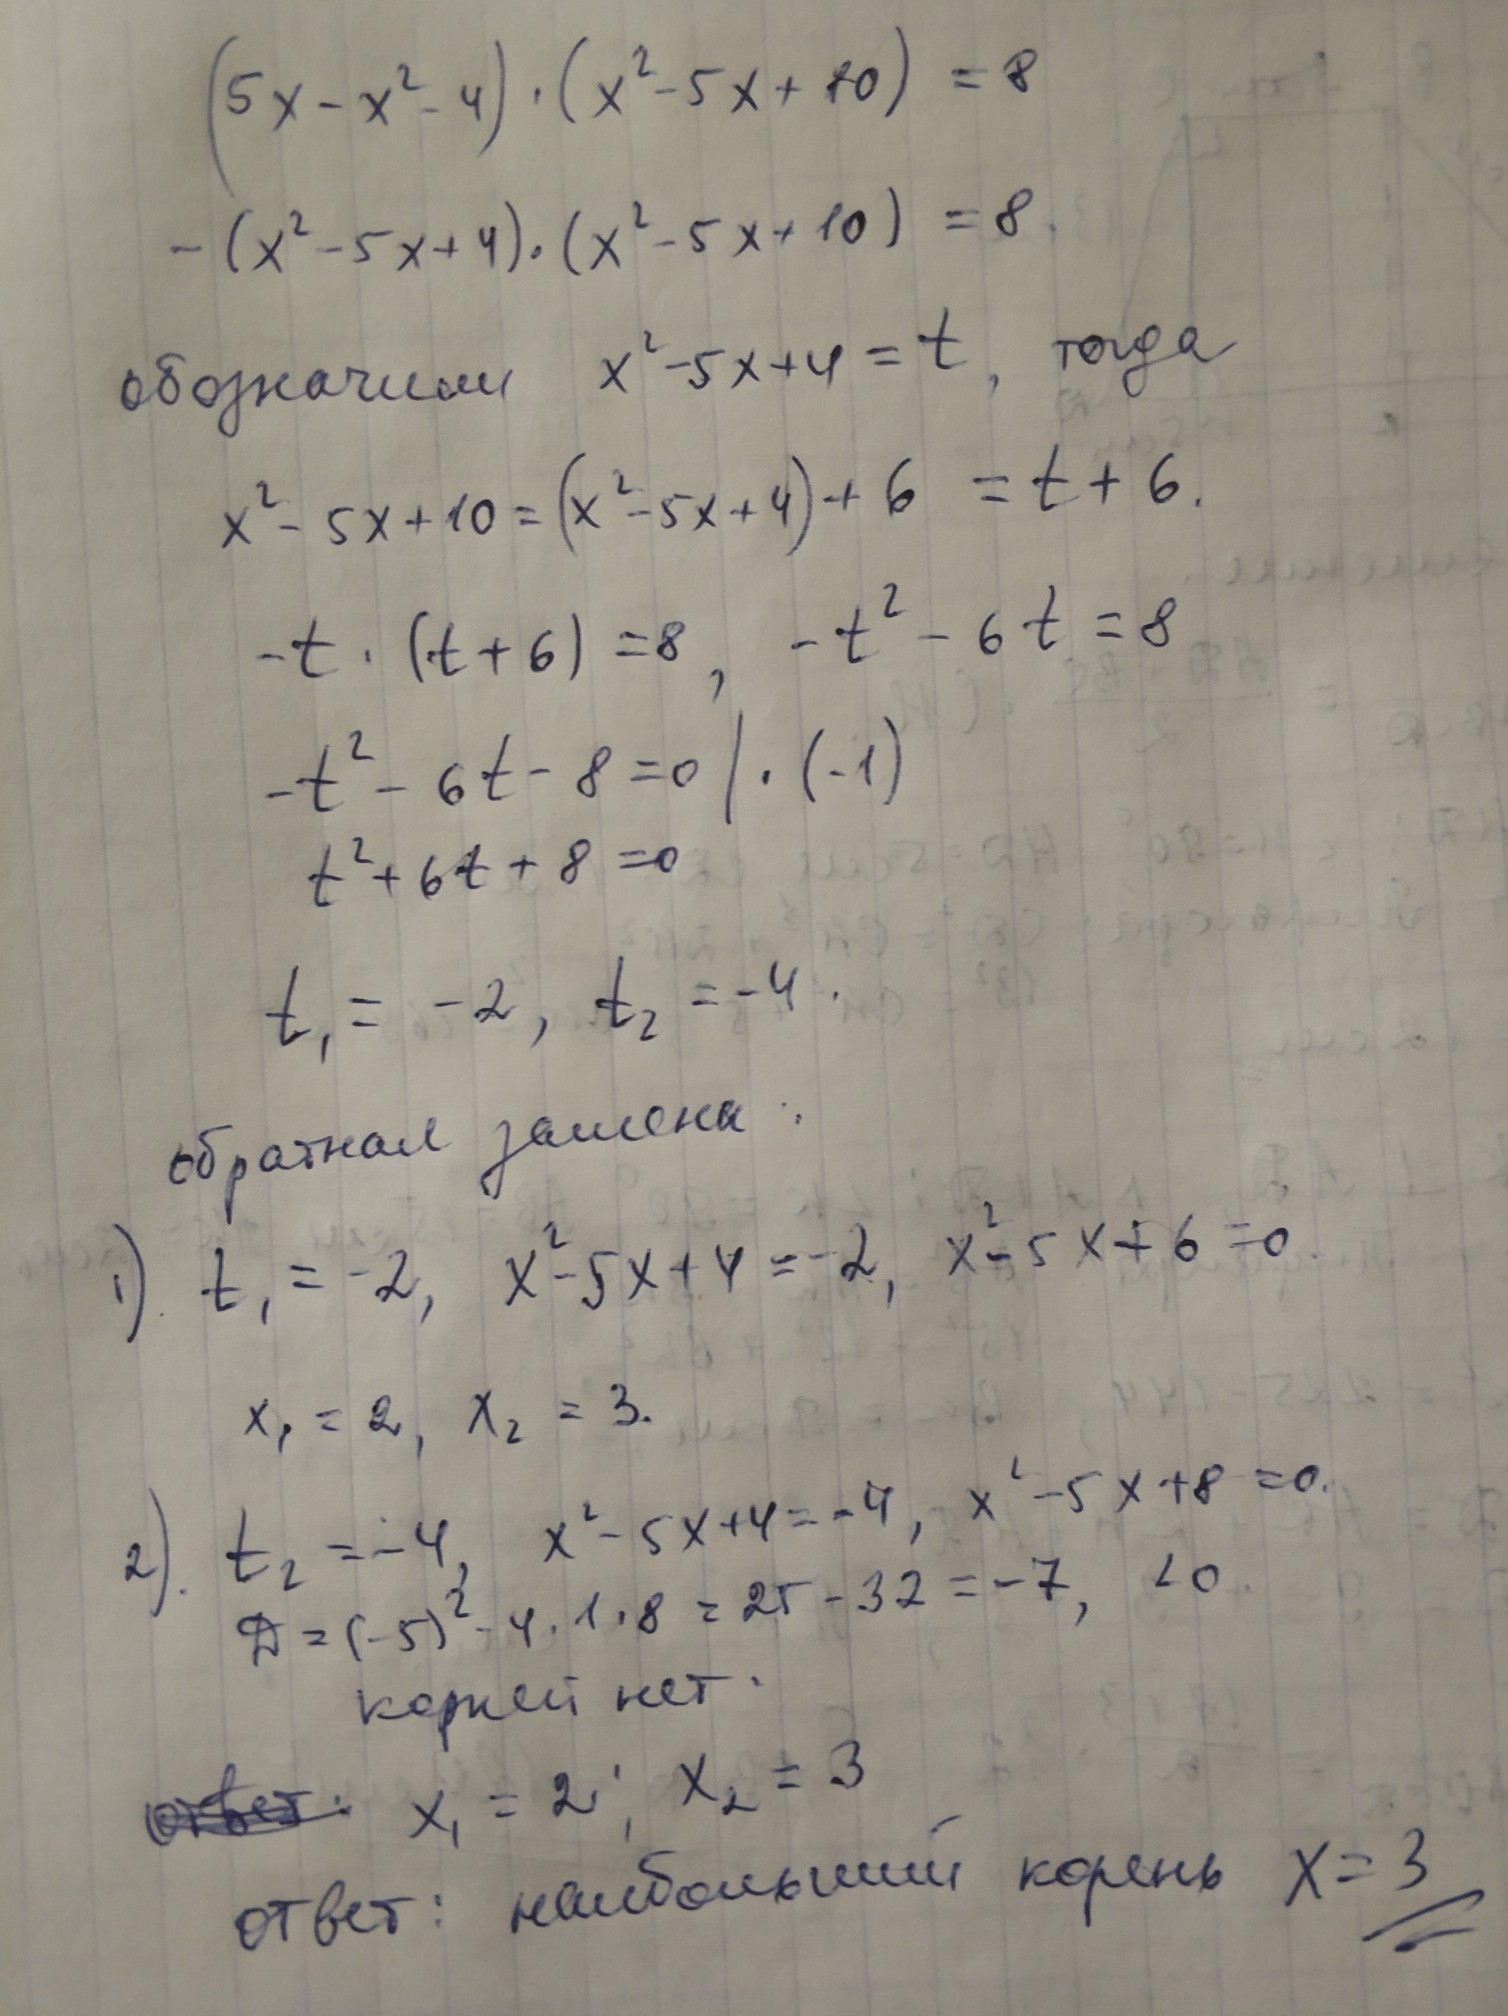 (5x - x² - 4) · (x² - 5x + 10) = 8
- (x² - 5x + 4) · (x² - 5x + 10) = 8.
обозначим x² - 5x + 4 = t, тогда
x² - 5x + 10 = (x² - 5x + 4) + 6 = t + 6.
-t · (t + 6) = 8, -t² - 6t = 8
-t² - 6t - 8 = 0 | · (-1)
t² + 6t + 8 = 0
t₁ = -2, t₂ = -4.
обратная замена:
1). t₁ = -2, x² - 5x + 4 = -2, x² - 5x + 6 = 0.
x₁ = 2, x₂ = 3.
2). t₂ = -4, x² - 5x + 4 = -4, x² - 5x + 8 = 0.
D = (-5)² - 4 · 1 · 8 = 25 - 32 = -7, < 0.
корней нет.
ответ: x₁ = 2; x₂ = 3
ответ: наибольший корень x = 3